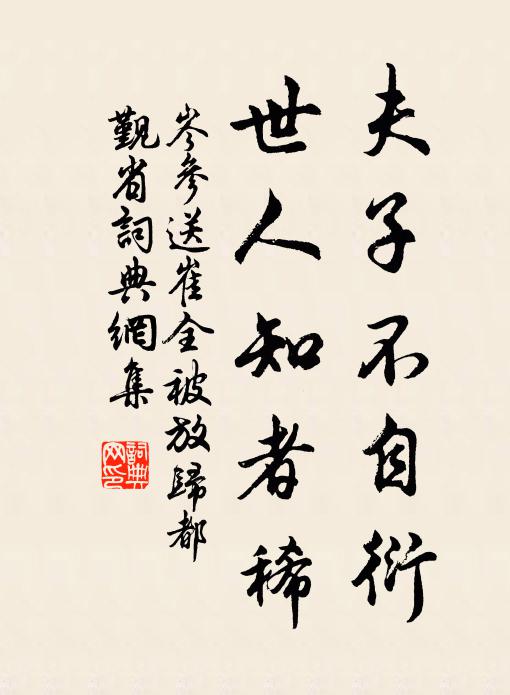 夫子不自衍
世人知者稀
岑參送崔全被放歸都
觐省詞典網集
詞典網印